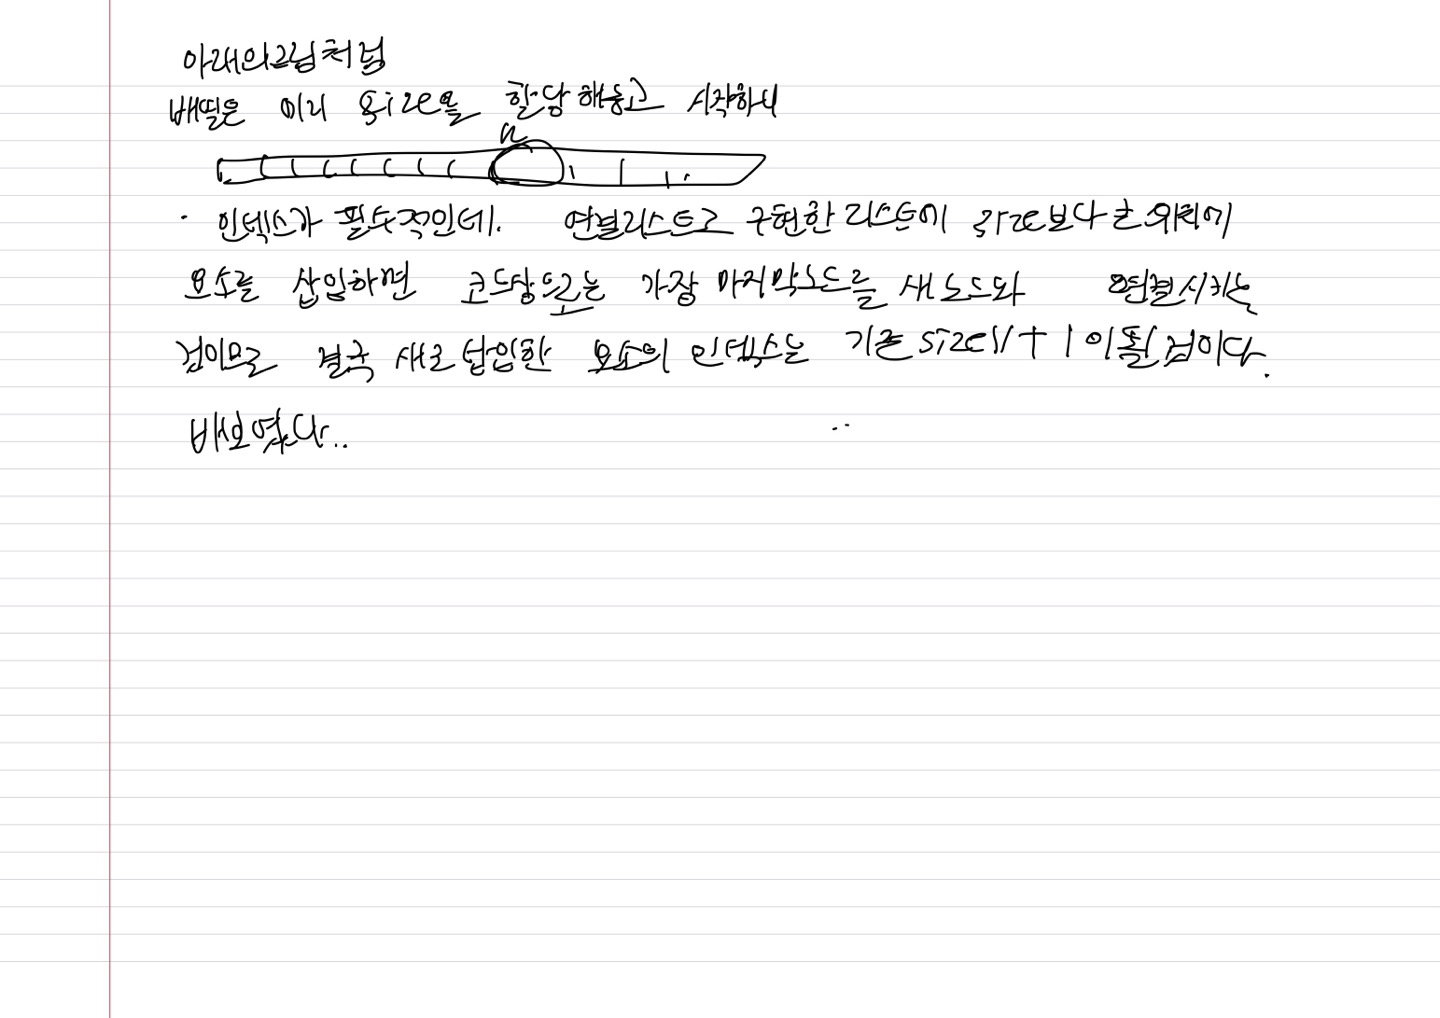 아래의그림처럼
배열은 미리 size을 할당해놓고 시작하니
n
· 인덱스가 필수적인데. 연결리스트로 구현한 리스트에 size보다 큰 위치에
요소를 삽입하면 코드상으로는 가장 마지막노드를 새노드와 연결시키는
것이므로 결국 새로 삽입한 요소의 인덱스는 기존 size + 1 이 될 것이다.
바보였다..